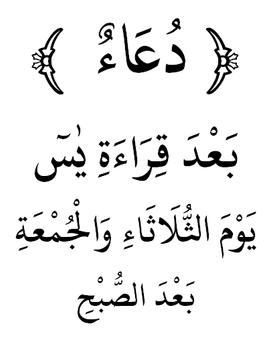 ﴿ دُعَاءٌ ﴾
بَعْدَ قِرَاءَةِ يٰسٓ
يَوْمَ الثُّلَاثَاءِ وَالْجُمْعَةِ
بَعْدَ الصُّبْحِ